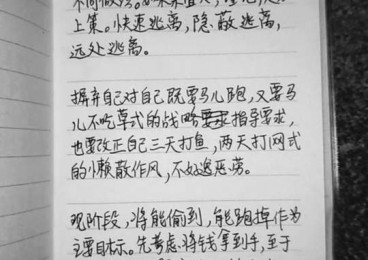 上策。快速逃离,隐蔽逃离,
远处逃离。
摒弃自己对自己既要马儿跑,又要马
儿不吃草式的战略指导要求,
也要改正自己三天打鱼,两天打网式
的懒散作风,不如逸恶劳。
现阶段,将能偷到,能跑掉作为
主要目标。先考虑将钱拿到手,至于